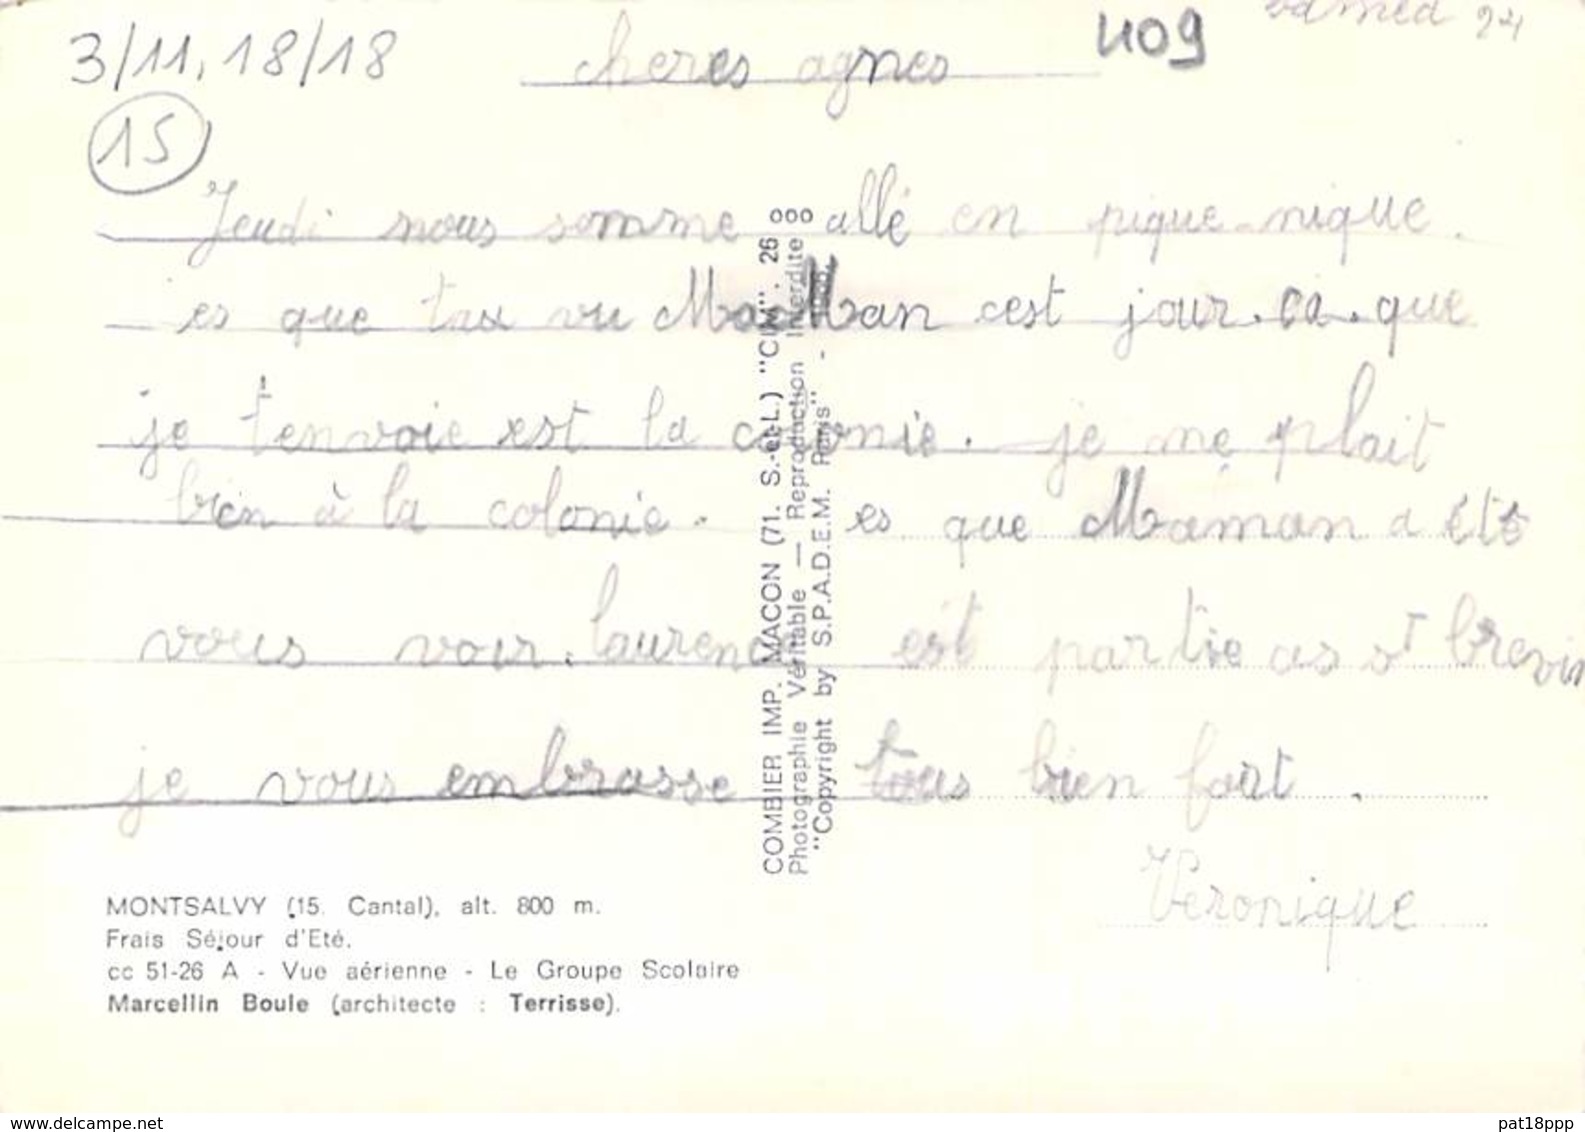 samedi 24
3/11, 18/18
409
15
cheres agnes
Jeudi nous somme allé en pique-nique.
es que tu vu Maman cest jour. ca. que
je t'envoie est la colonie. je me plait
bien à la colonie. es que Maman a été
vous voir. laurence est partie as st brevin
je vous embrasse tous bien fort.
Veronique
COMBIER IMP. MACON (71. S.-et-L.) "CIM". 26 000
Photographie Véritable — Reproduction Interdite
"Copyright by S.P.A.D.E.M. Paris" -
MONTSALVY (15. Cantal), alt. 800 m.
Frais Séjour d'Eté.
cc 51-26 A - Vue aérienne - Le Groupe Scolaire
Marcellin Boule (architecte : Terrisse).
delcampe.net
pat18ppp